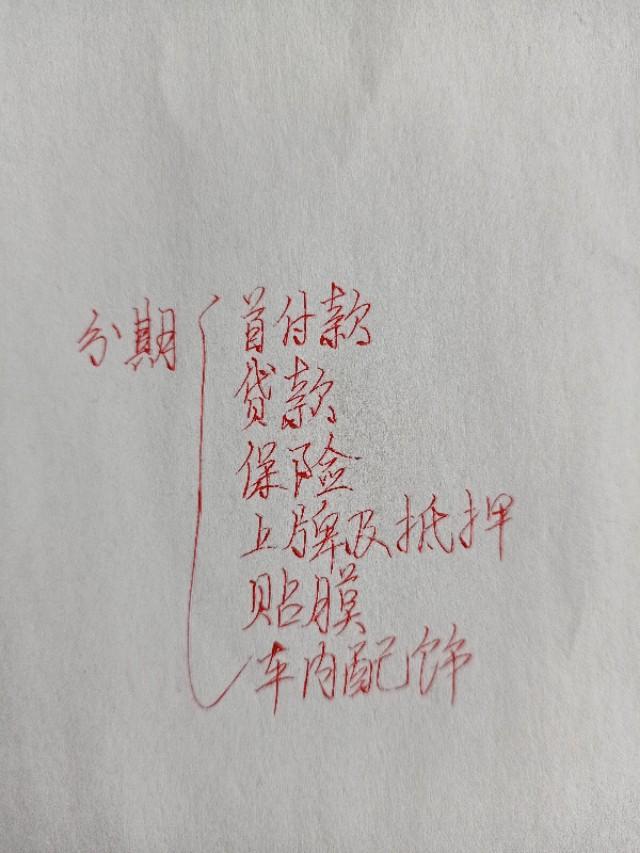 分期
首付款
贷款
保险
上牌及抵押
贴膜
车内配饰